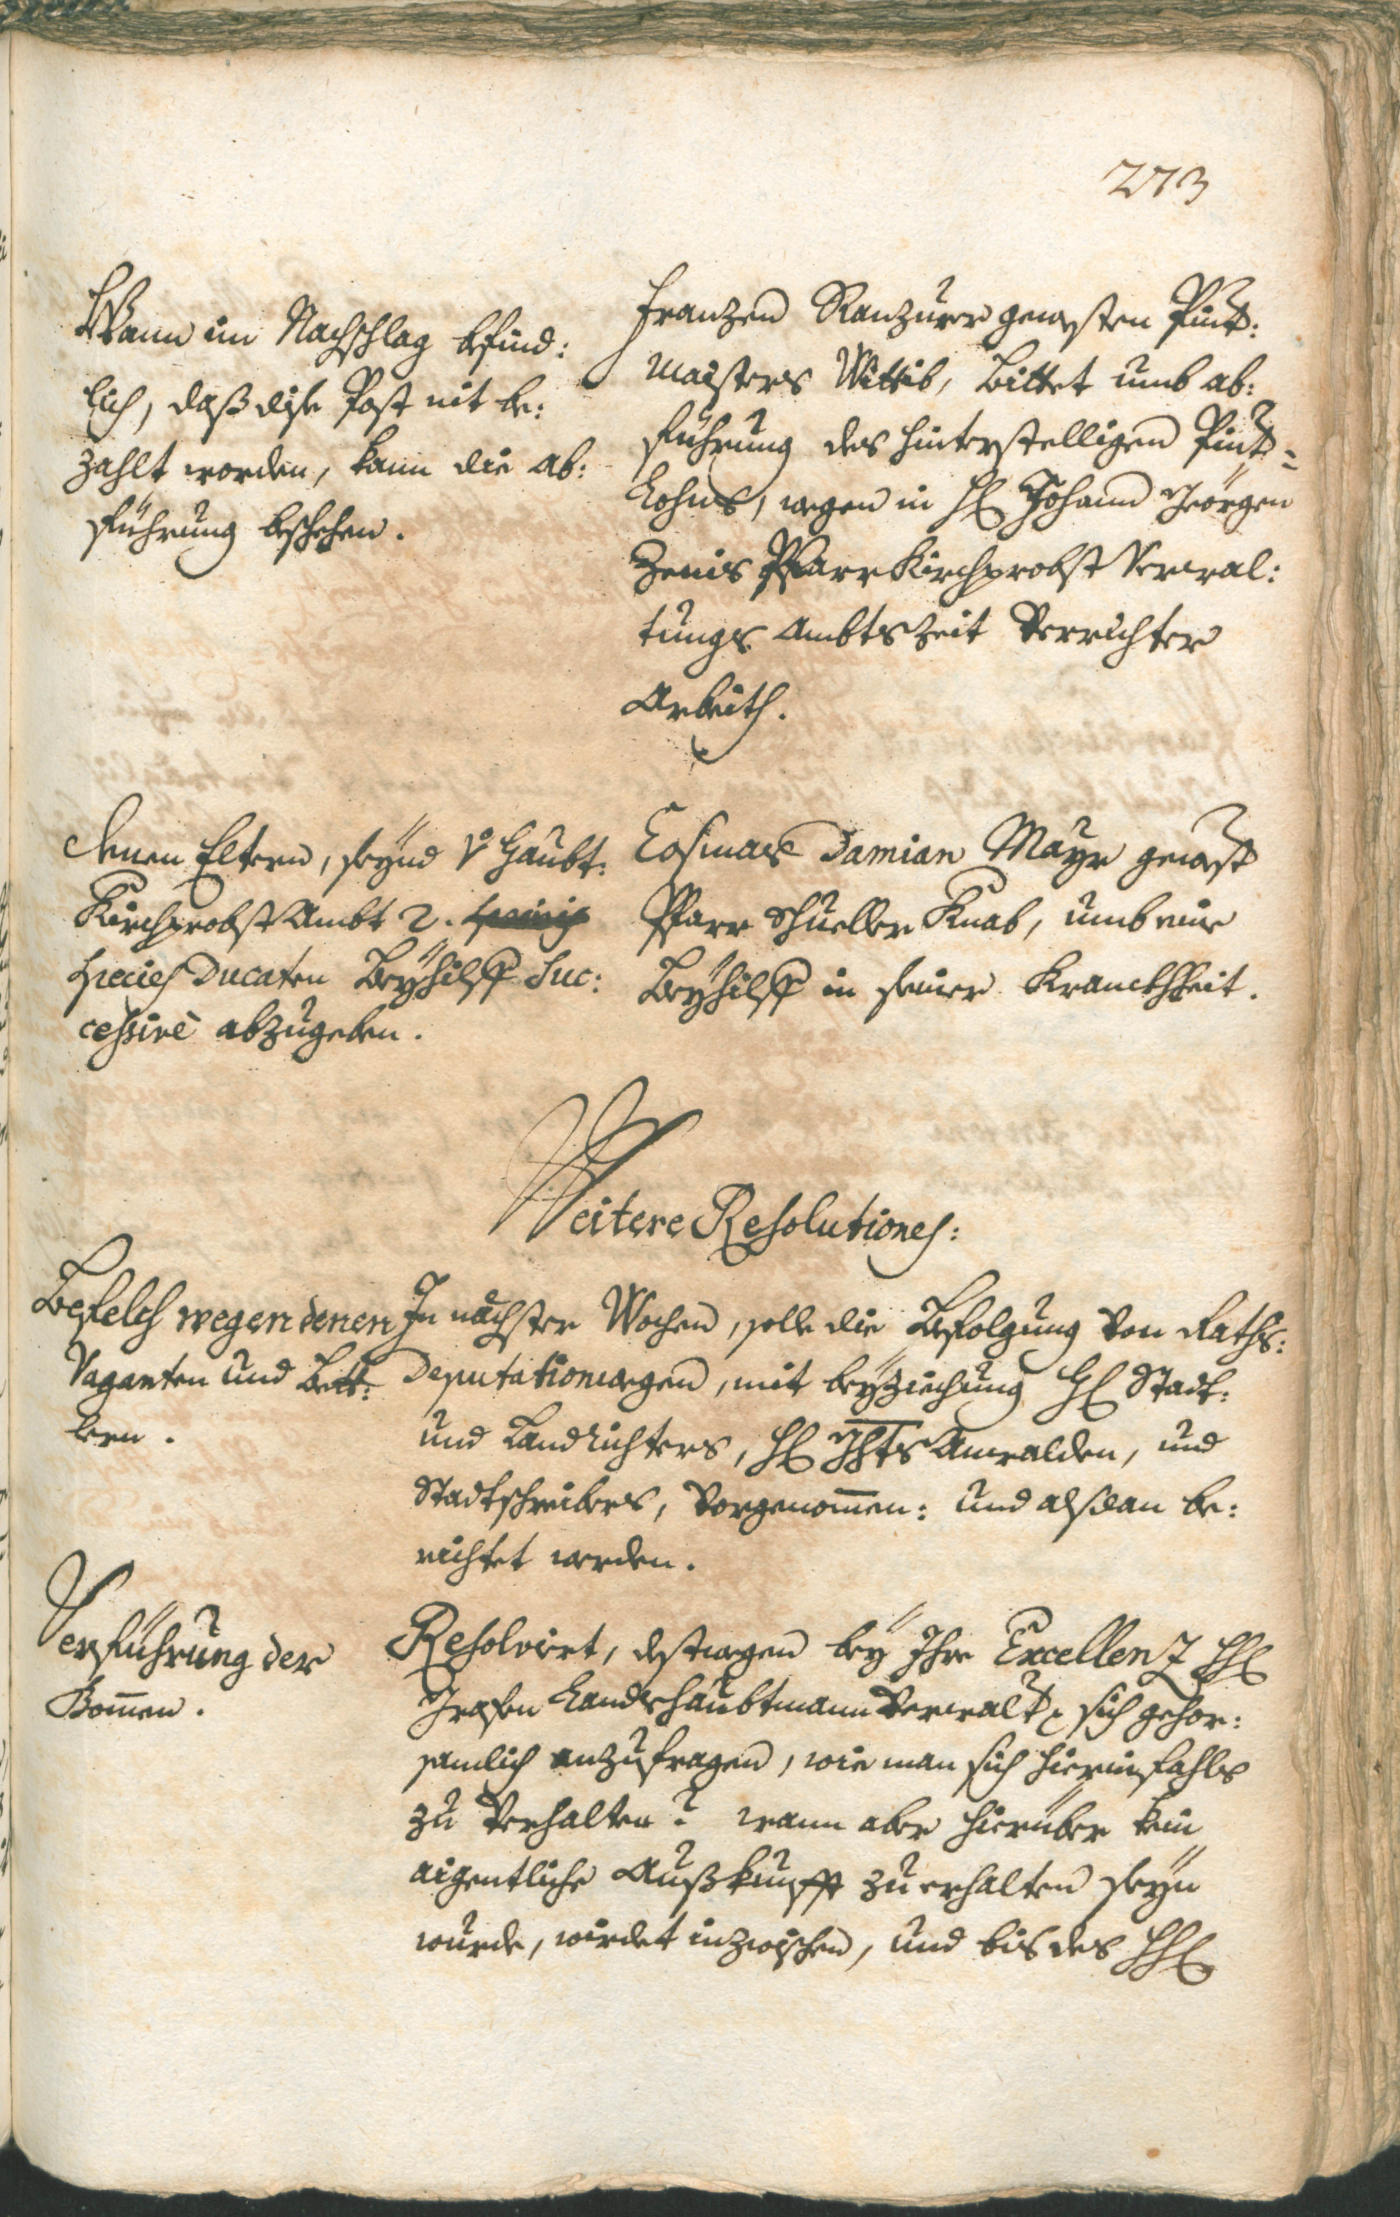 273
Wann im Nachschlag befind:
lich, daß dise Post nit be:
zahlt worden, kann die ab:
führung beschehen.
Franzen Ranzurer gewesten Pint:
maisters Wittib, Bittet umb ab:
führung des hinterstelligen Pint=
Lohns, wegen in H Johann Geörgen
Zenis Pfarr Kirchprobst Verwal:
tungs Ambtszeit Verrichter
Arbeith.
denen Eltern, seynd v Haubt:
Kirchprobst Ambt 2.
species Ducaten Beyhilff suc:
cessivè abzugeben.
Cosmas Damian Mayr gewest
Pfarr Schueller Knab, umb eine
Beyhilff in seiner Kranckheit.
Weitere Resolutiones:
Befelch wegen denen
Vaganten und Bett:
lern.
In nächster Wochen, solle die Befolgung von Raths:
Deputation wegen, mit beyziechung H Stadt:
und Landrichters, H Ghts Anwalden, und
Stadtschreibers, Vorgenomen: und alsdan be:
richtet werden.
Verführung der
Bomen.
Resolvirt, destwegen bey Ihro Excellenz HH
Grafen Landshaubtmann Verwalt, sich gehor:
samlich anzufragen, wie man sich hierinfahls
zu Verhalten? wann aber hierüber kein
aigentliche Außkunfft zu erhalten seyn
wurde, wirdet inzwischen, und bis des HH